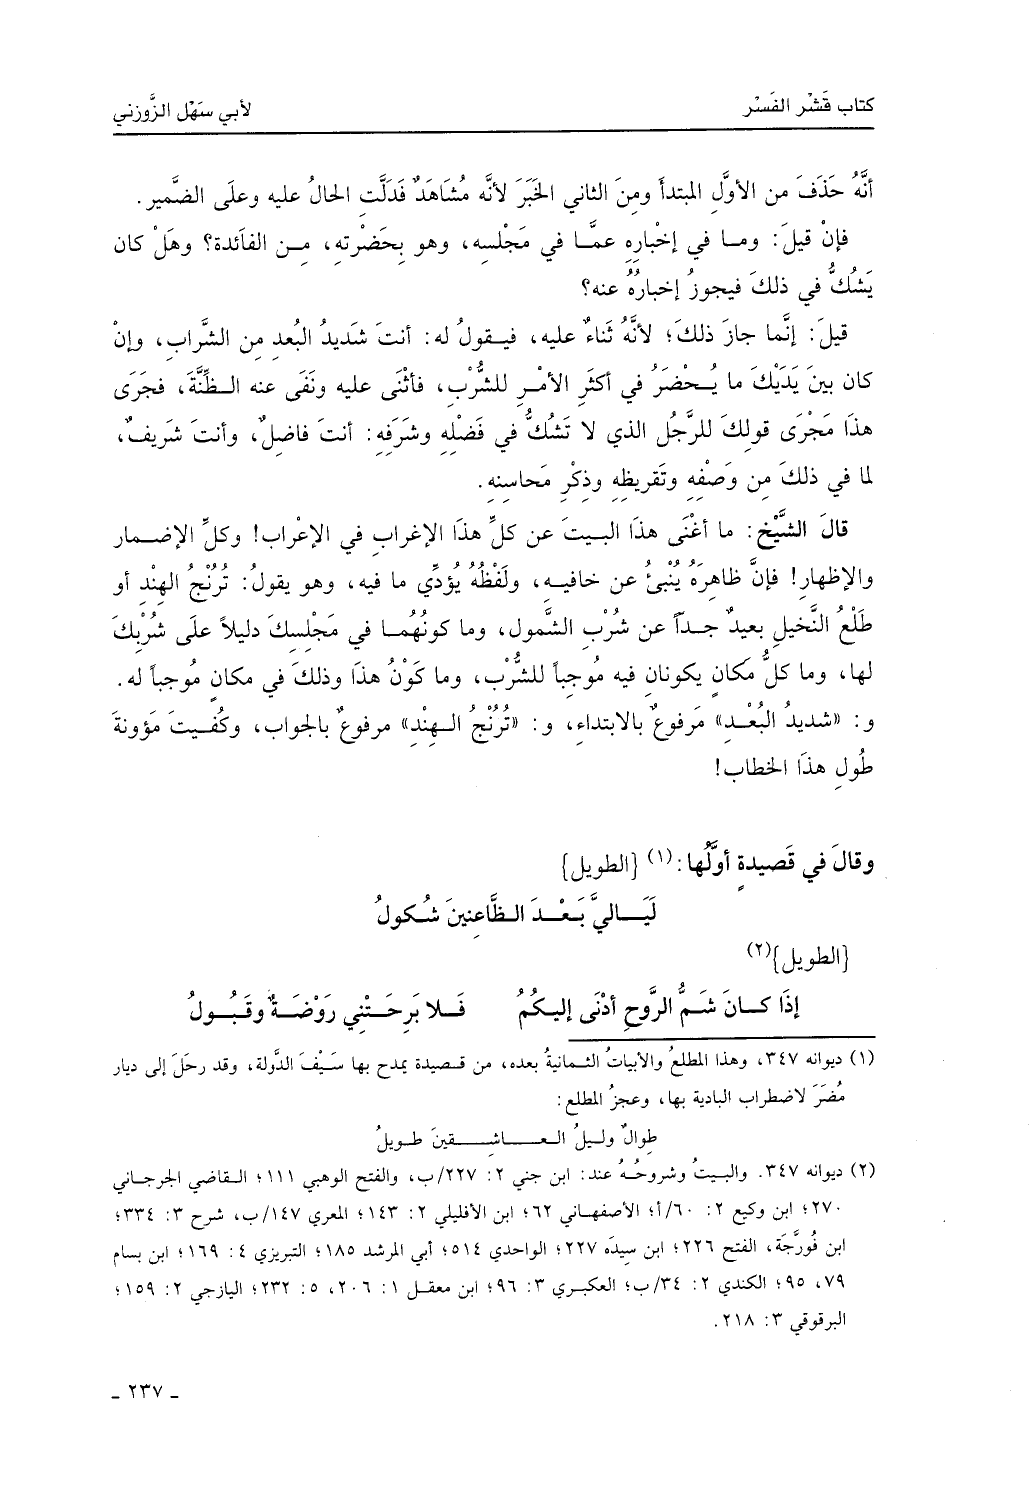 كتاب قَشْر الفَسْر
لأبي سهْل الزَّوزني
أنَّهُ حَذَفَ من الأوَّلِ المبتدأ ومنَ الثاني الخَبَرَ لأنَّه مُشَاهَدٌ فَدَلَّت الحالُ عليه وعلَى الضَّمير.
فإنْ قيلَ: وما في إخْبارِهِ عمَّا في مَجْلسِهِ، وهو بِحَضْرتِهِ، مـن الفاَئدة؟ وهَلْ كان
يَشكُّ في ذلكَ فيجوزُ إخبارُهُ عنه؟
قيلَ: إنَّما جازَ ذلكَ؛ لأنَّهُ ثَناءٌ عليه، فيقولُ له: أنتَ شَديدُ البُعد من الشَّراب، وإنْ
كان بينَ يَدَيْكَ ما يُحْضَرُ في أكثَرِ الأمْرِ للشُّرْب، فأثْنَى عليه ونَفَى عنه الظِّنَّةَ، فجَرَى
هذَا مَجْرَى قولكَ للرَّجُل الذي لا تَشُكُّ في فَضْلِهِ وشَرَفِهِ: أنتَ فاضلٌ، وأنتَ شَريفٌ،
لما في ذلكَ مِن وَصْفِهِ وتَقريظِهِ وذِكْرِ مَحاسِنِهِ.
قالَ الشَّيْخ: ما أغْنَى هذَا البيتَ عن كلِّ هذَا الإغرابِ في الإعْراب! وكلِّ الإضمار
والإظهار! فإنَّ ظاهرَهُ يُنْبئُ عن خافيه، ولَفْظُهُ يُؤدِّي ما فيه، وهو يقولُ: تُرُنْجُ الهِنْدِ أو
طَلْعُ النَّخيلِ بعيدٌ جداً عن شرْب الشَّمول، وما كونُهُما في مَجْلسِكَ دليلاً علَى شُرْبِكَ
لها، وما كلُّ مكان يكونان فيه مُوجباً للشُّرْب، وما كَوْنُ هذَا وذلكَ في مكان مُوجباً له.
و: «شديدُ البُعْد» مَرفوعٌ بالابتداء، و: «تُرُنْجُ الهِنْد» مرفوعٌ بالجواب، وكُفيتَ مؤونةَ
طُول هذَا الخطاب!
وقالَ في قَصيدةٍ أوَّلُها:(١) {الطويل}
لَيَـــاليَّ بَعْـــدَ الظَّاعنينَ شُكولُ
{الطويل}(٢)
إذَا كـانَ شَمُّ الرَّوحِ أدْنَى إليكُمُ فَلا بَرحَتْني رَوْضَةٌ وقَبُولُ
(١) ديوانه ٣٤٧، وهذا المطلعُ والأبياتُ الثمانيةُ بعده، من قصيدة يمدح بها سَيْفَ الدَّولة، وقد رحَلَ إلى ديار
مُضَرَ لاضطراب البادية بها، وعجزُ المطلع:
طِوالٌ وليلُ العـــاشقينَ طويلُ
(٢) ديوانه ٣٤٧. والبيتُ وشروحُهُ عند: ابن جني ٢: ٢٢٧/ب، والفتح الوهبي ١١١؛ القاضي الجرجاني
٢٧٠؛ ابن وكيع ٢: ٦٠/أ؛ الأصفهاني ٦٢؛ ابن الأفليلي ٢: ١٤٣؛ المعري ١٤٧/ب، شرح ٣: ٣٣٤؛
ابن فُورَّجَة، الفتح ٢٢٦؛ ابن سيدَه ٢٢٧؛ الواحدي ٥١٤؛ أبي المرشد ١٨٥؛ التبريزي ٤: ١٦٩؛ ابن بسام
٧٩، ٩٥؛ الكندي ٢: ٣٤/ب؛ العكبري ٣: ٩٦؛ ابن معقل ١: ٢٠٦، ٥: ٢٣٢؛ اليازجي ٢: ١٥٩؛
البرقوقي ٣: ٢١٨.
ـ ٢٣٧ ـ